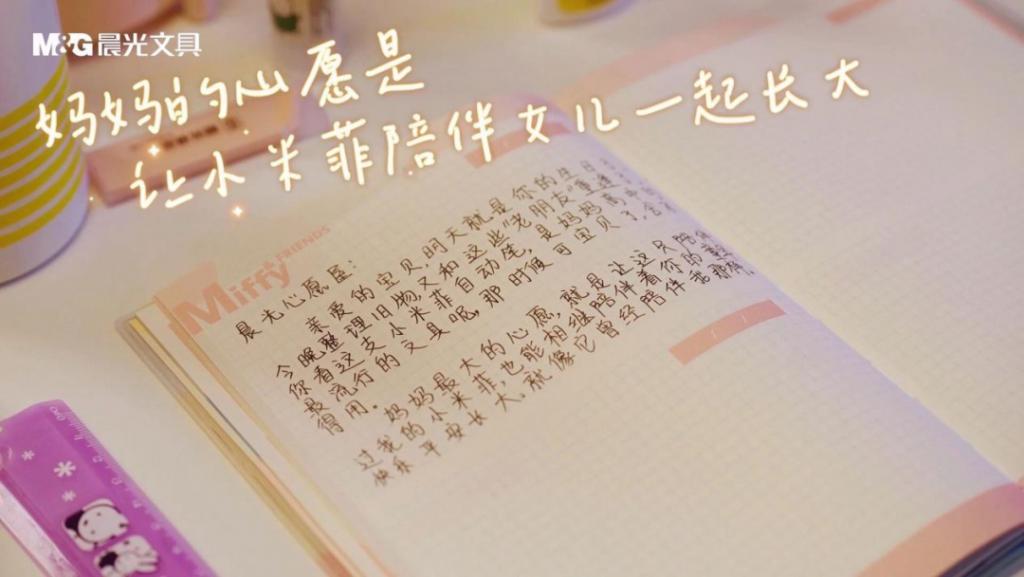 M&G晨光文具
妈妈的心愿是
让小米菲陪伴女儿一起长大
Miffy
& FRIENDS
晨光心愿屋：
亲爱的宝贝明天就是你的生日
今晚整理旧物又和这些"老朋友"重逢
你看这支小米菲自动笔,是妈妈高中
最流行的文具呢,那时候可宝贝了舍
得用.
妈妈最大的心愿,就是让这只陪伴
过我的小米菲,也能相继陪伴着你的
快乐平安长大.就像它曾经陪伴我那样